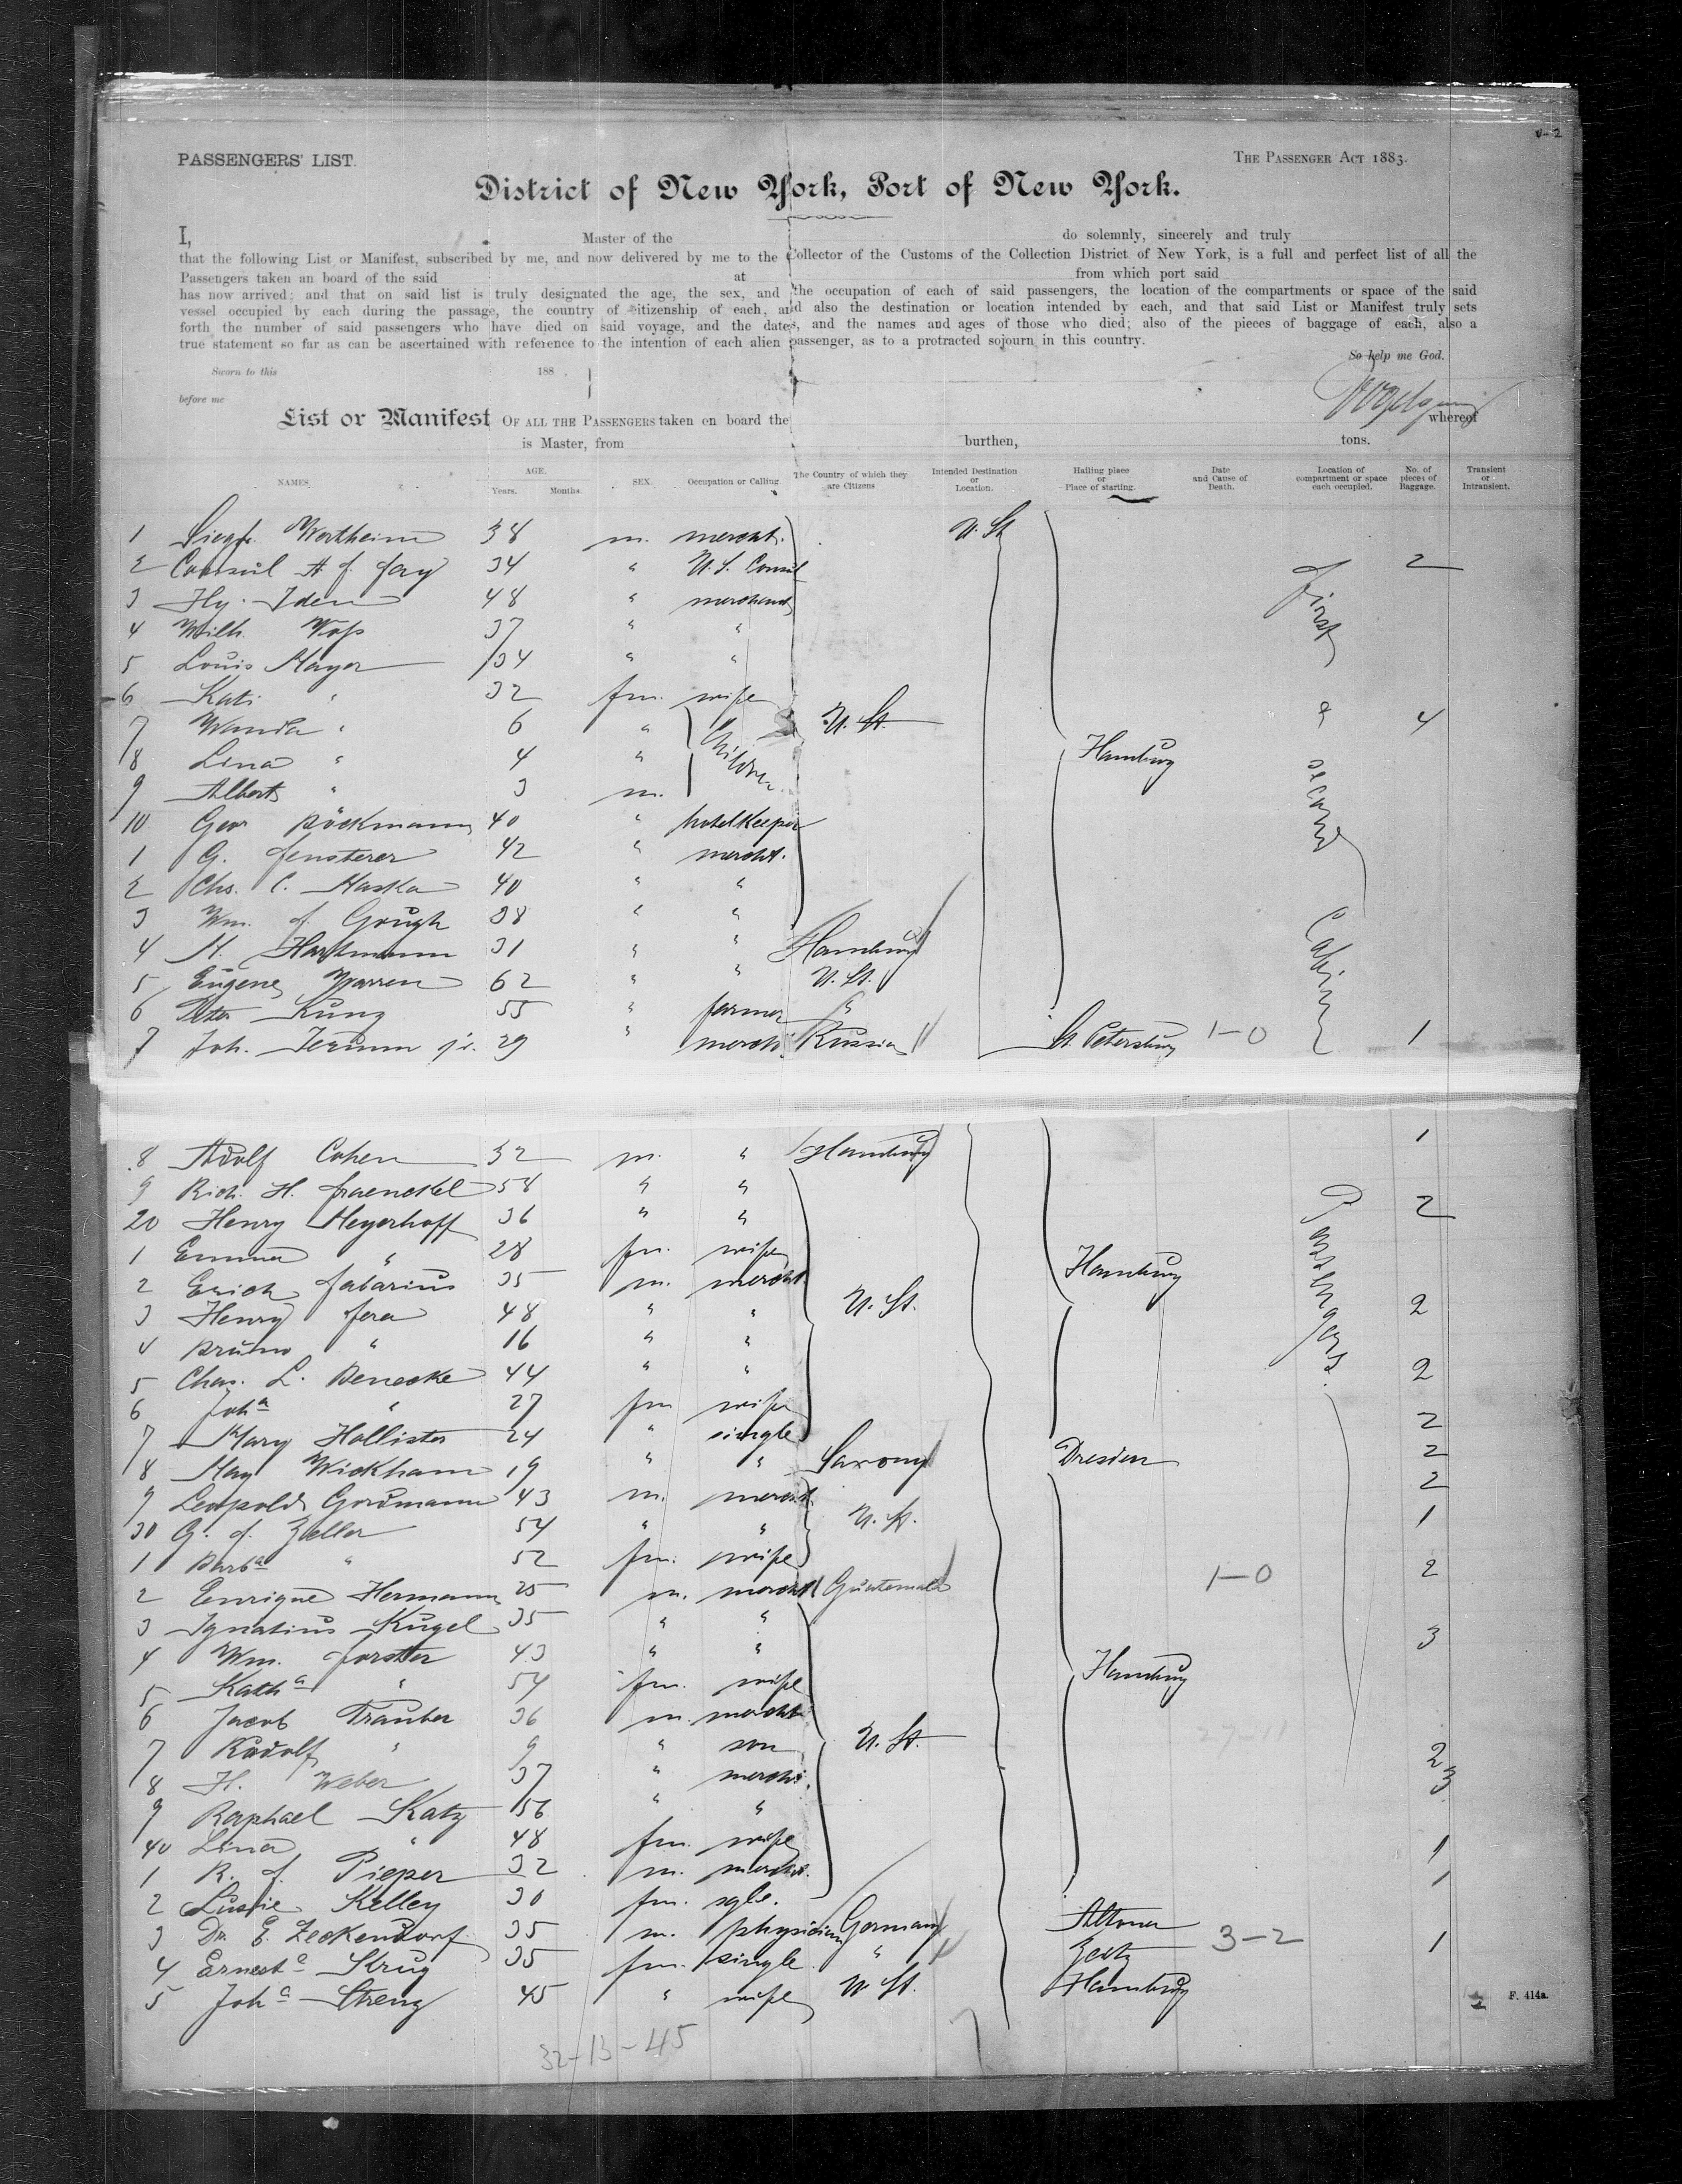 V-2
PASSENGERS' LIST.
THE PASSENGER ACT 1883.
District of New York, Port of New York.
I, Master of the do solemnly, sincerely and truly
that the following List or Manifest, subscribed by me, and now delivered by me to the Collector of the Customs of the Collection District of New York, is a full and perfect list of all the
Passengers taken an board of the said at from which port said
has now arrived; and that on said list is truly designated the age, the sex, and the occupation of each of said passengers, the location of the compartments or space of the said
vessel occupied by each during the passage, the country of citizenship of each, and also the destination or location intended by each, and that said List or Manifest truly sets
forth the number of said passengers who have died on said voyage, and the dates, and the names and ages of those who died; also of the pieces of baggage of each, also a
true statement so far as can be ascertained with reference to the intention of each alien passenger, as to a protracted sojourn in this country.
So help me God.
Sworn to this 188 .
before me
List or Manifest OF ALL THE PASSENGERS taken on board the whereof
is Master, from burthen, tons.
NAMES. AGE. Years. Months. SEX. Occupation or Calling. The Country of which they are Citizens Intended Destination or Location. Hailing place or Place of starting. Date and Cause of Death. Location of compartment or space each occupied. No. of pieces of Baggage. Transient or Intransient.
1 Siegfr. Wertheim 38 m. mercht. U. St.
2 Consul A f. Jay 34 " U. S. Consul First 2
3 Hy. Iden 48 " merchand
4 Wilh. Voss 37 " "
5 Louis Mayer 34 " "
6 Kati " 32 fm. wife
7 Wanda " 6 " Children U. St. & 4
8 Lina " 4 " Hamburg
9 Albert " 3 m. second
10 Geo Böckmann 40 " hotelkeeper
1 G. Fensterer 42 " mercht.
2 Chs. C. Maska 40 " "
3 Wm. f. Gough 38 " " Cabin
4 H. Hartmann 31 " " Hamburg
5 Eugene Warren 62 " " U. St.
6 Peter Kunz 55 " farmer "
7 Joh. jr. 29 " mercht. Russia St. Petersburg 1-0 1
8 Adolf Cohen 32 m. " Hamburg 1
9 Rich. H. Fraenckel 58 " " Passengers.
20 Henry Meyerhoff 36 " " 2
1 Emma " 28 fm. wife
2 Erich Fabarius 35 m. mercht. Hamburg
3 Henry Fera 48 " " U. St. 2
4 Bruno " 16 " "
5 Chas. L. Benecke 44 " " 2
6 Joha " 27 fm wife
7 Mary Hollister 24 " single 2
8 May Wickham 19 " " Saxony Dresden 2
9 Leopold Gordmann 43 m. mercht. 2
30 G. f. Zeller 54 " " U. St. 1
1 Barba " 52 fm. wife
2 Enrique Hermann 25 m. mercht Guatemala 1-0 2
3 Ignatius Kugel 35 " "
4 Wm. Forster 43 " " 3
5 Katha " 54 fm. wife Hamburg
6 Jacob Trauber 36 m. mercht.
7 Rudolf " 9 " son U. St. 27-11
8 H. Weber 37 " mercht. 2
9 Raphael Katz 56 " " 3
40 Lina " 48 fm. wife
1 R. f. Pieper 32 m. mercht. 1
2 Kelley 30 fm. sgle. 1
3 Dr. E. Zeckendorf 35 m. physician Germany Altona
4 Ernesta Krug 35 fm. single " Zeitz 3-2 1
5 Joha Streng 45 " wife U. St. Hamburg
F. 414a.
32-13-45